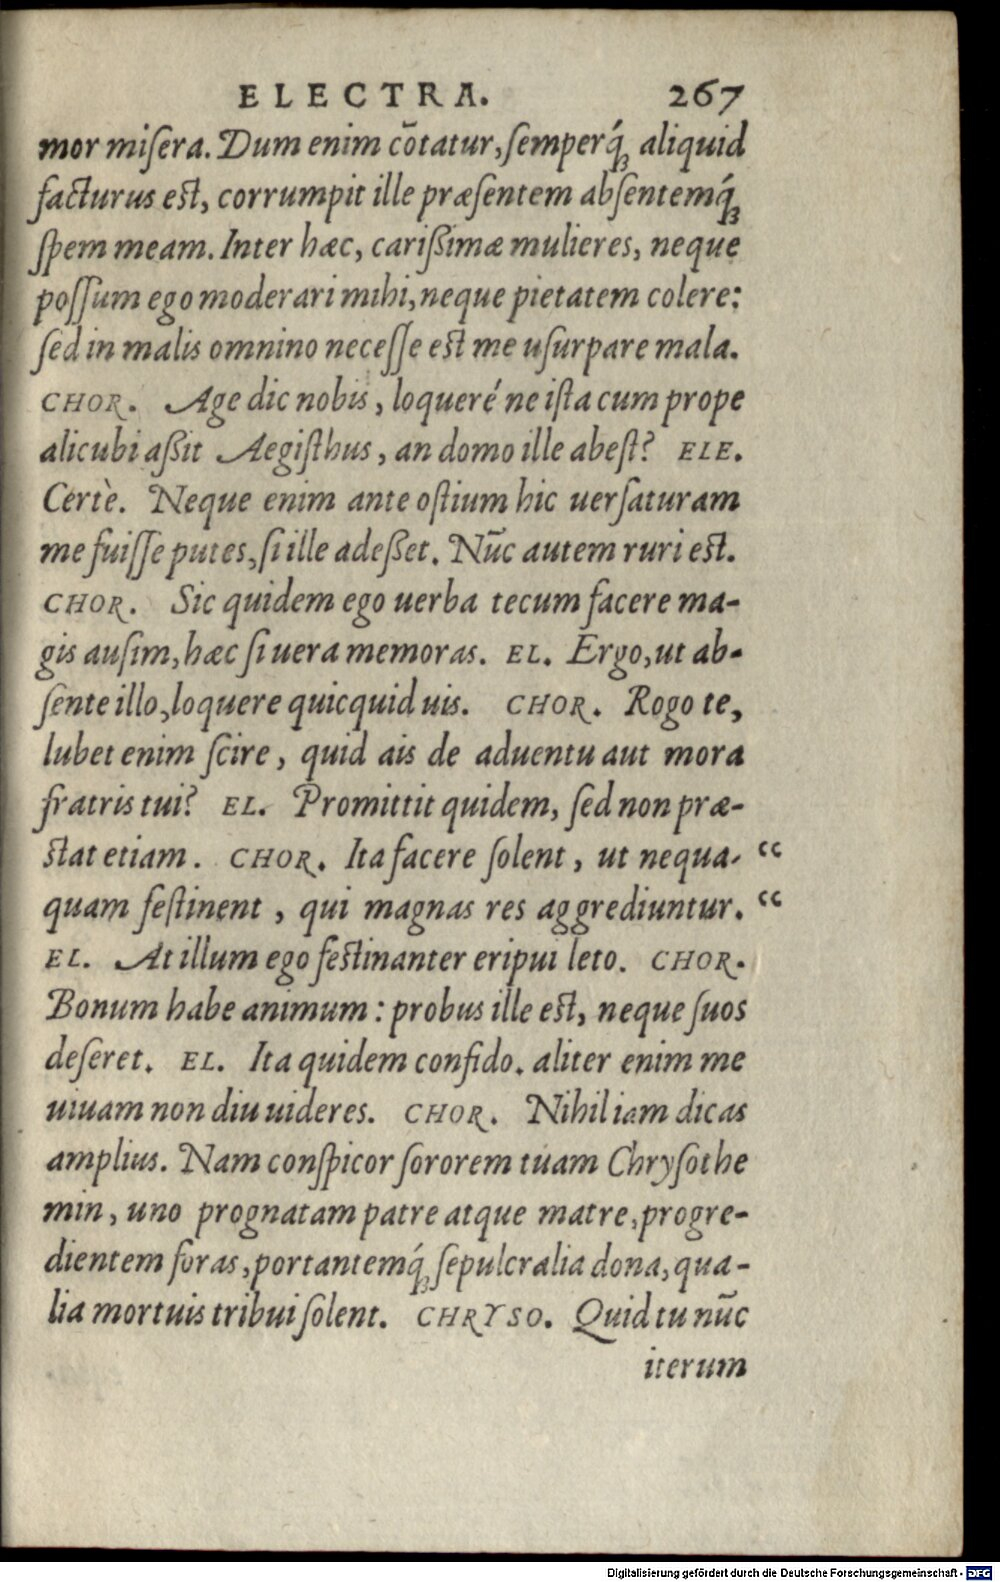 ELECTRA. 267
mor miſera. Dum enim cõtatur, ſemperq́ꝫ aliquid
facturus est, corrumpit ille præſentem abſentemq́ꝫ
ſpem meam. Inter hæc, carißimæ mulieres, neque
poſſum ego moderari mihi, neque pietatem colere:
ſed in malis omnino neceſſe est me uſurpare mala.
CHOR. Age dic nobis, loqueré ne iſta cum prope
alicubi aßit Aegiſthus, an domo ille abeſt? ELE.
Certè. Neque enim ante oſtium hic uerſaturam
me fuiſſe putes, ſi ille adeßet. Nũc autem ruri est.
CHOR. Sic quidem ego uerba tecum facere ma-
gis auſim, hæc ſi uera memoras. EL. Ergo, ut ab-
ſente illo, loquere quicquid uis. CHOR. Rogo te,
lubet enim ſcire, quid ais de aduentu aut mora
fratris tui? EL. Promittit quidem, ſed non præ-
ſtat etiam. CHOR. Ita facere ſolent, ut nequa- “
quam feſtinent, qui magnas res aggrediuntur. “
EL. At illum ego feſtinanter eripui leto. CHOR.
Bonum habe animum: probus ille est, neque ſuos
deſeret. EL. Ita quidem confido. aliter enim me
uiuam non diu uideres. CHOR. Nihil iam dicas
amplius. Nam conſpicor ſororem tuam Chryſothe
min, uno prognatam patre atque matre, progre-
dientem foras, portantemq́ꝫ ſepulcralia dona, qua-
lia mortuis tribui ſolent. CHRYSO. Quid tu nũc
iterum
Digitalisierung gefördert durch die Deutsche Forschungsgemeinschaft - DFG